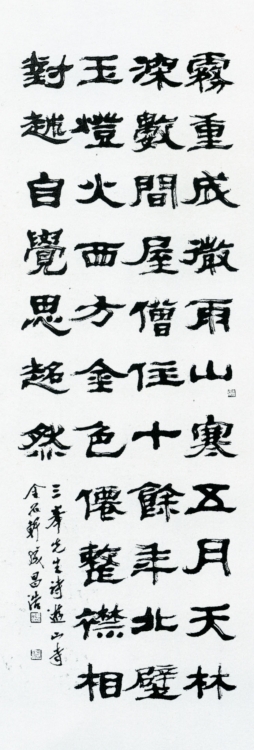 霧重成微雨山寒五月天林
深數間屋僧住十餘年北壁
玉燈火西方金色僊整襟相
對越自覺思超然
三峯先生詩遊山寺
金石軒昌浩